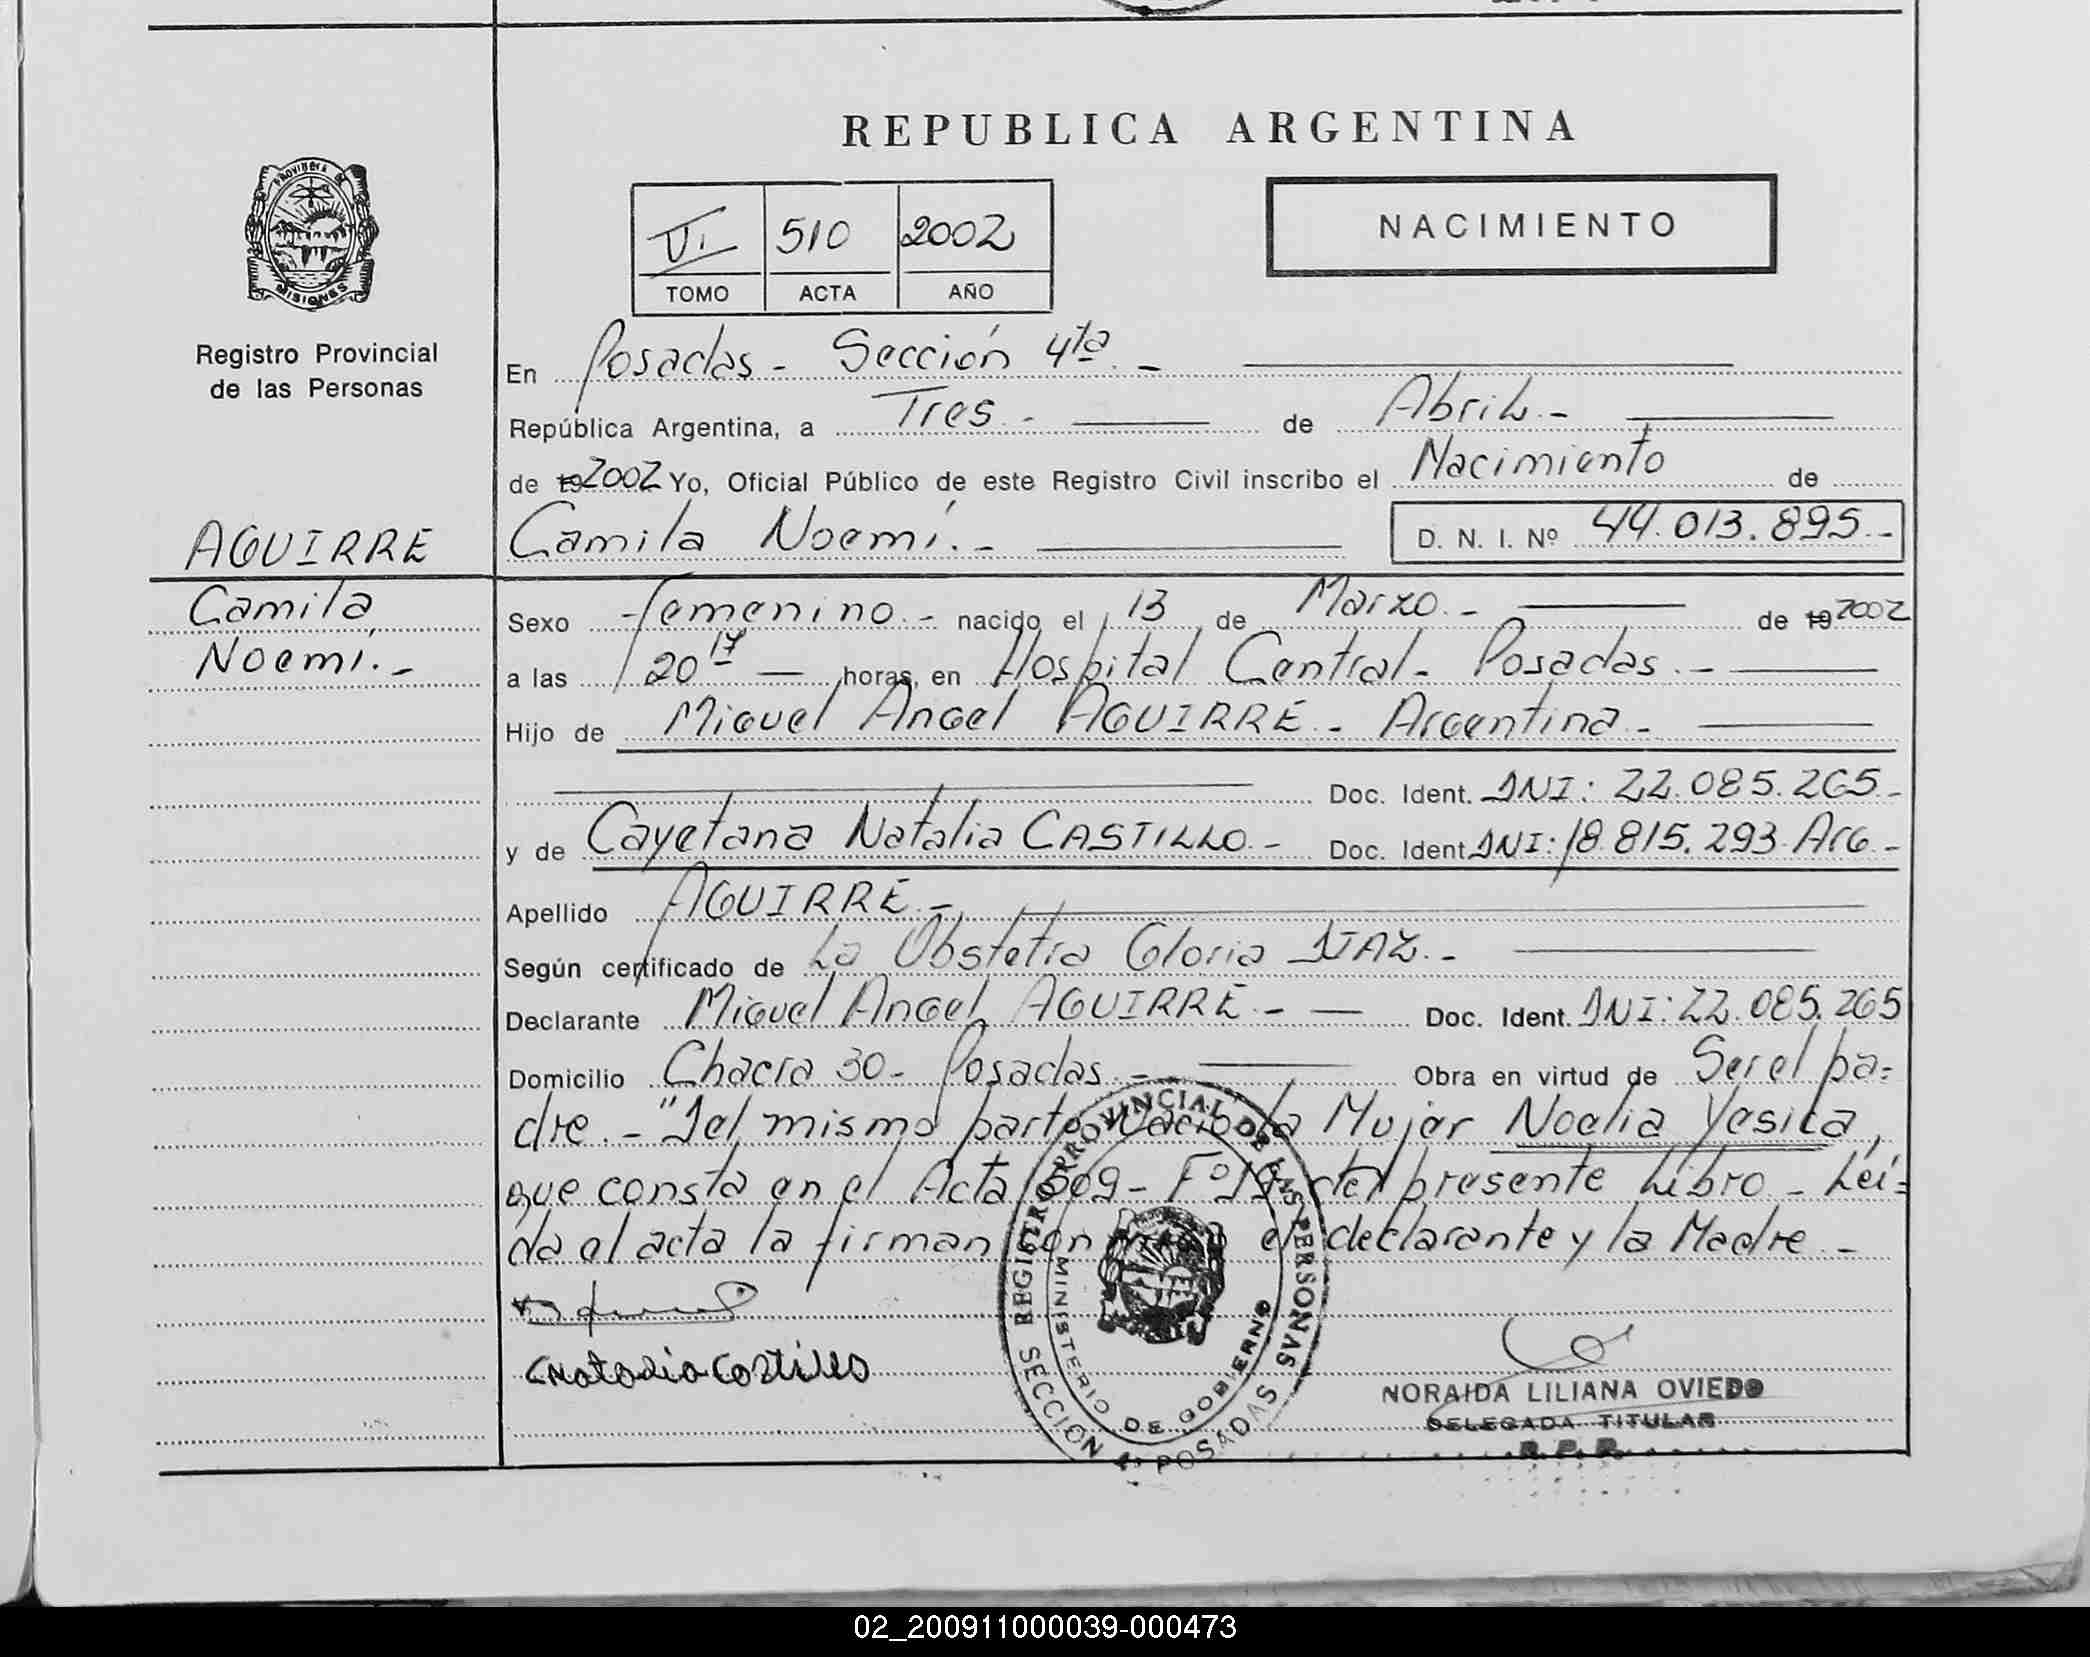 REPUBLICA ARGENTINA
PROVINCIA DE
MISIONES
Registro Provincial
de las Personas
VI 510 2002
TOMO ACTA AÑO
NACIMIENTO
En Posadas - Sección 4ta. -
República Argentina, a Tres. - de Abril. -
de 19 2002 Yo, Oficial Público de este Registro Civil inscribo el Nacimiento de
AGUIRRE
Camila Noemí. - D. N. I. Nº 44.013.895. -
Camila
Noemi. -
Sexo femenino. - nacido el 13 de Marzo. - de 19 2002
a las 20 17 horas, en Hospital Central - Posadas. -
Hijo de Miguel Angel AGUIRRE - Argentina -
Doc. Ident. DNI: 22.085.265 -
y de Cayetana Natalia CASTILLO. - Doc. Ident. DNI: 18.815.293 Arg -
Apellido AGUIRRE. -
Según certificado de La Obstetra Gloria DIAZ. -
Declarante Miguel Angel AGUIRRE - Doc. Ident. DNI: 22.085.265
Domicilio Chacra 30 - Posadas. - Obra en virtud de Ser el pa=
dre. - "Del mismo parto nacio la Mujer Noelia Yesica,
que consta en el Acta 509 - Fº del presente Libro - Leí=
da el acta la firman el declarante y la Madre. -
CNatalia Castillo
REGISTRO PROVINCIAL DE LAS PERSONAS
MINISTERIO DE GOBIERNO
SECCIÓN 4ª POSADAS
NORAIDA LILIANA OVIEDO
DELEGADA TITULAR
R. P. P.
02_200911000039-000473